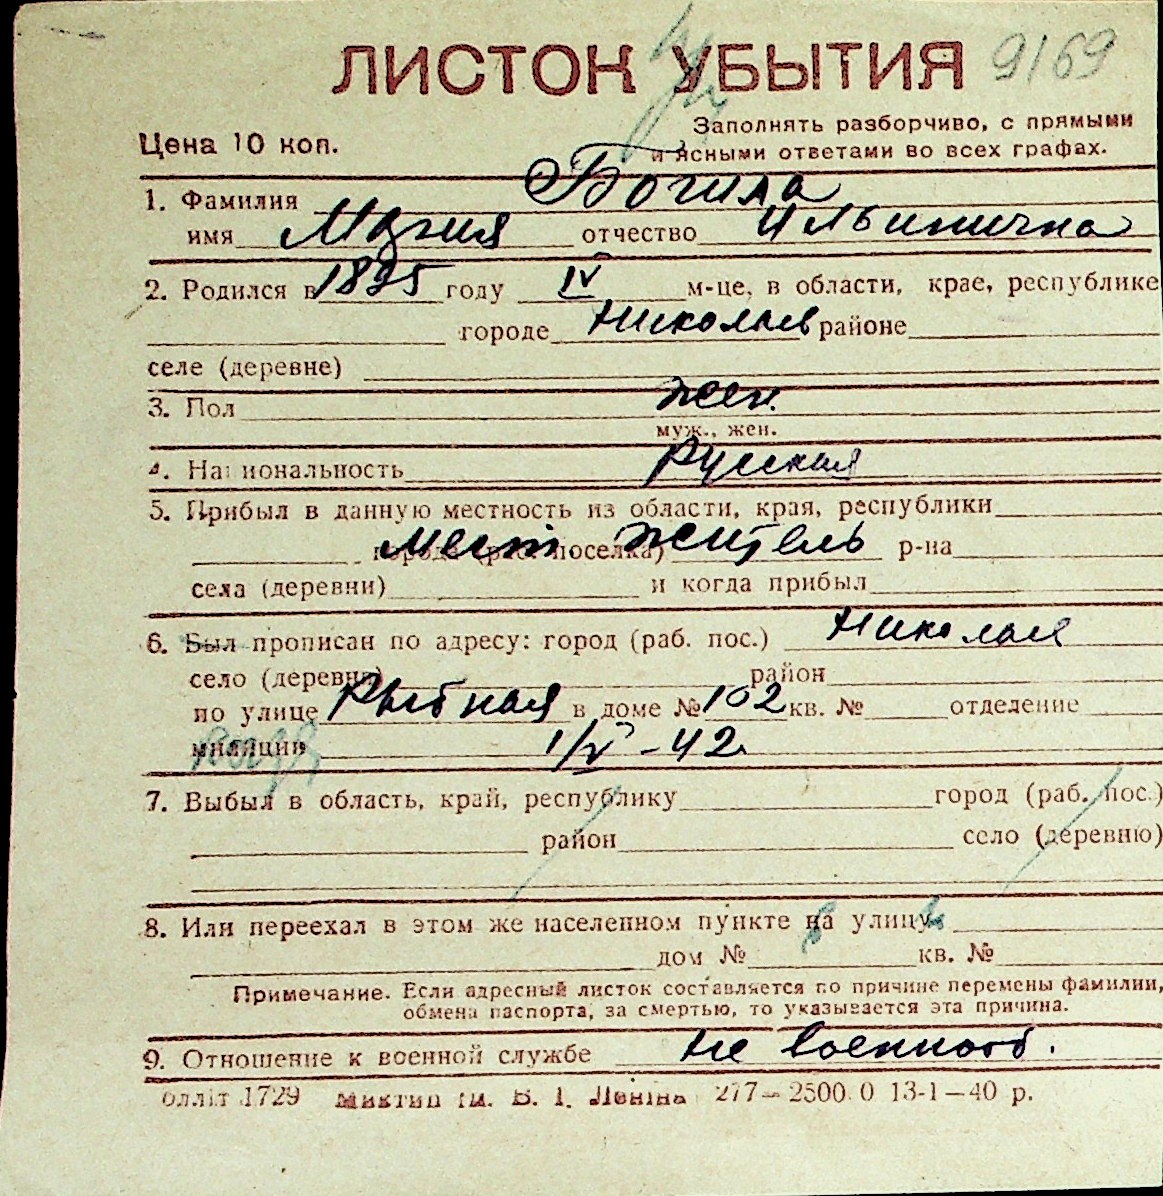 ЛИСТОК УБЫТИЯ 9169
Цена 10 коп.
Заполнять разборчиво, с прямыми
и ясными ответами во всех графах.
1. Фамилия Богила
имя Мария отчество Ильинична
2. Родился в 1895 году IV м-це, в области, крае, республике
городе Николаев районе
селе (деревне)
3. Пол жен.
муж., жен.
4. Национальность русская
5. Прибыл в данную местность из области, края, республики
города (раб. поселка) мест житель р-на
села (деревни) и когда прибыл
6. Был прописан по адресу: город (раб. пос.) Николаев
село (деревни) район
по улице Рыбная в доме № 102 кв. № отделение
милиции 1/V-42
7. Выбыл в область, край, республику город (раб. пос.)
район село (деревню)
8. Или переехал в этом же населенном пункте на улицу
дом № кв. №
Примечание. Если адресный листок составляется по причине перемены фамилии,
обмена паспорта, за смертью, то указывается эта причина.
9. Отношение к военной службе не военнооб.
олліт 1729 Миктип ім. В. І. Леніна 277—2500.0 13-1—40 р.